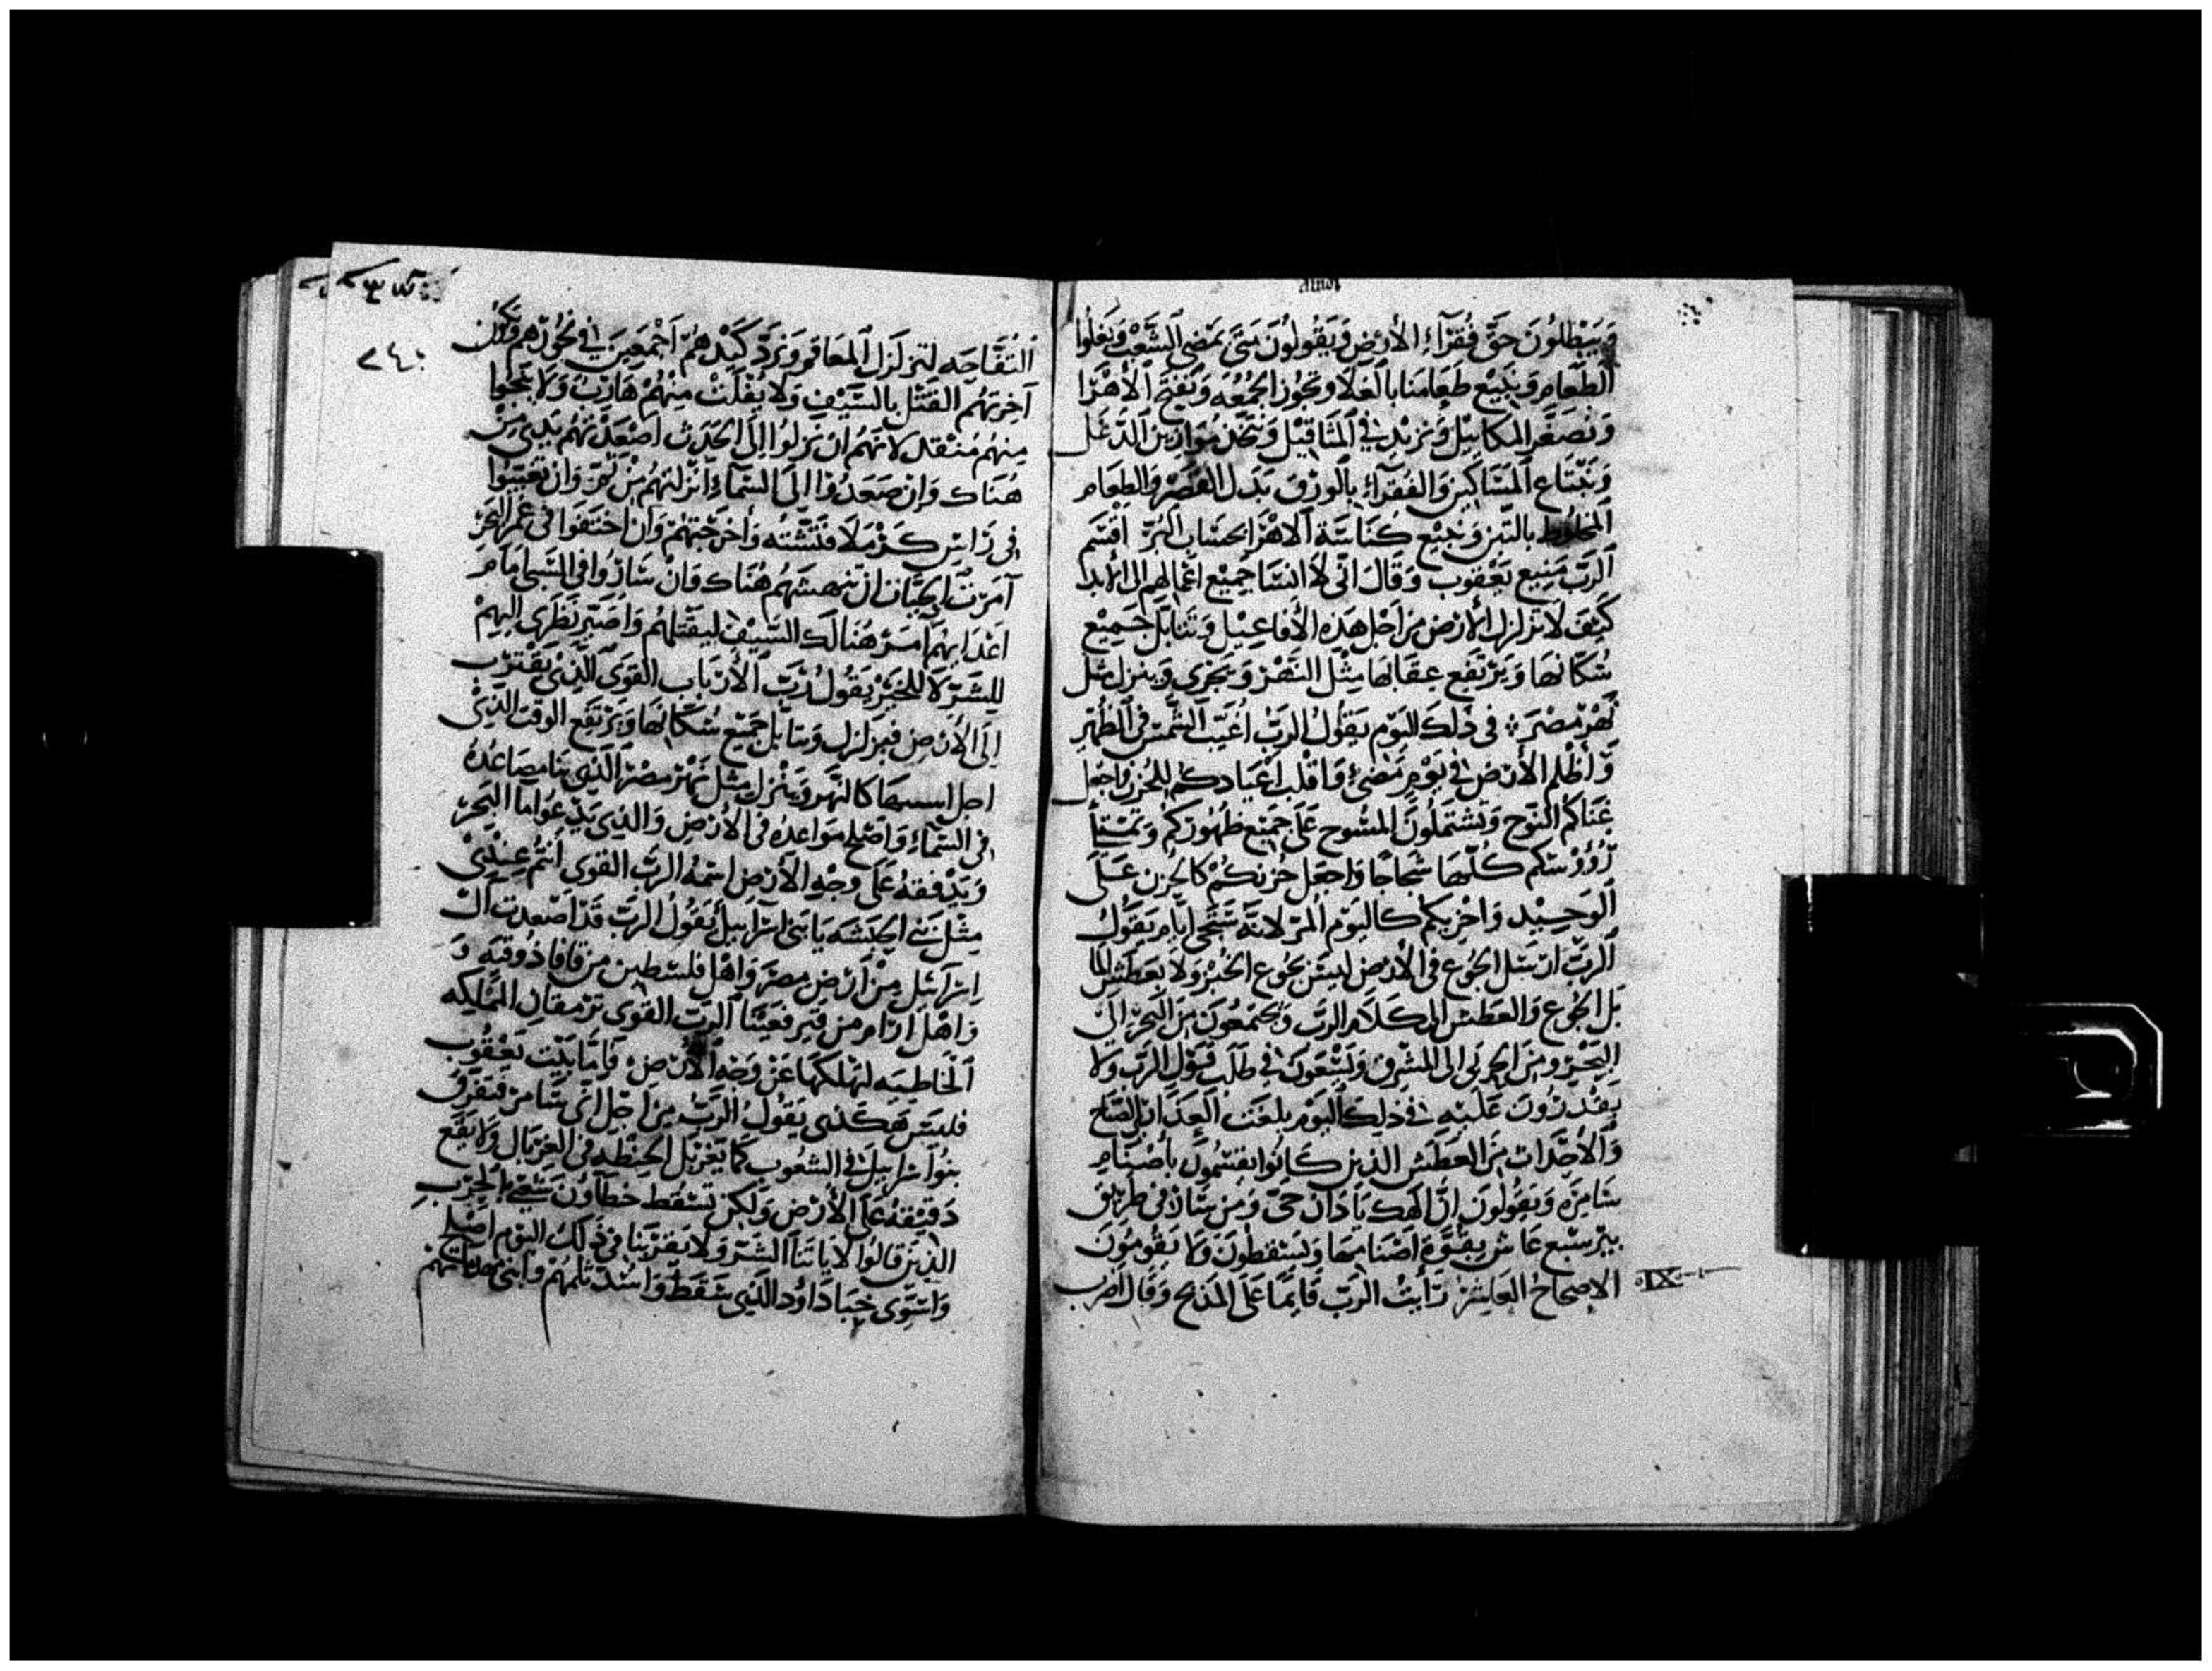 وَيَبْطلُونَ حَقَّ فُقَرَآءِ الأَرْضِ وَيَقُولُونَ مَتَى يَمضِى السَّبْت وَيَغلُوا
الطَّعَام وَنَبِيْع طَعَامنَا بِالغَلَا وتجُوز الجُمعُه وَنَفتح الأَهْرَا
وَنُصَغّر المكَايِيْل وَنَزيْد فِي المثَاقيْل وَنتخذ مَوَازين الدَّغَل
وَنَبْتَاع المسَاكِين وَالفُقَرآءِ بِالوَرَق بَدَل القصر وَالطعَام
المخلُوط بالتِّبن وَنبيْع كُنَاسَة الاهْرَا بحسَاب البُرّ اقْسَم
الرَّبّ مَنِيع يَعْقوب وَقَالَ انّى لَا انسَا جَمِيْع اعمَالهم الى الأبد
كَيْفَ لَا تزلزل الأَرْض من اجْل هَذه الأَفَاعِيْل وَتتَابَّل جَمِيْع
سُكّانهَا وَيَرْتَفع عقَابهَا مِثْل النَهْر وَيَجْرِي وَينزل مثل
نَهْر مصْرَ ❖ فى ذلكَ اليَوْم يَقُوْلُ الرَبّ اُغَيّب الشَّمسْ فى الظُهْر
وَأظْلم الأَرْض في يَوْم مُضىْ وَاقلب اعْيَادكم للحُزن وَاجْعَل
غِنَاكم النَّوْح وَتشتملُونَ المسُوح عَلَى جَمِيْع ظهُورَكُم
رُؤُوْسكم كُلّهَا وَاجعَل حُزنكُمْ كَالحُزن عَلَى
الوَحِيْد وَاخْزيكم كاليَوْم المُرّ لانَّهُ سَتَجى ايَّام يَقُوْلُ
الرَّبّ ارْسَل الجُوْع فى الأَرْض ليسَ بجُوع الخُبْز وَلَا بعَطَش الما
بَل الجُوع وَالعَطَش الى كَلَام الرَّب وَيجْتَمعُونَ منَ البَحْر الى
البَحْر وَمنَ الجربى الى المشْرق وَيَسْعَونَ فى طَلَب قَوْل الرَّب وَلَا
يَقْدرُونَ عَلَيْهِ في ذلكَ اليَوْم بلغت العَذَارى الصَّاح
وَالأَحْدَاث منَ العَطَش الذين كَانُوا يقسمُونَ بأصْنَام
سَامرَه وَيَقُولُونَ انَّ الَهك يَا دَان حَىّ وَمن سَارَ فى طَريق
بيْر سَبع عَاش بقُوَّة اَصْنَامهَا وَيَسْقطُونَ وَلَا يَقُومُونَ
الاصحَاحُ العَاشرْ رَأَيْتُ الرَّبّ قَايمًا عَلَى المَذبح وَقَالَ اضرب
IX
التُفَّاحَه لتزلزَل المعَاقم وَنَردّ كَيْدهُمْ اجْمَعِيْنَ فى نحُورهم وَتكُون
آخرَتهُم القَتْل بِالسَّيْف وَلَا يفلَتْ منهُمْ هَاربٌ وَلَا ينجُوا
مِنهُم مُنفَلت لانَّهُم ان نزلُوا الى الجَدَث اصْعَدَتهُم يَدى منْ
هُنَاك وَانْ صَعَدُوا الى السَّمَآءِ انزَلتهُمْ منْ ثَمّ وَان تغيَبُوا
في رَاس كَرْمَلَا فَتَشته وَأخرَجْتهُمْ وَان اختَفَوْا فى عُمْق البَحْر
آمرْت الحيَّات ان تنهشهُم هُنَاك وَانْ سَارُوا فى السَّبى امَام
اعْدَايهم امر هُنَالكَ السَّيف ليقْتلهُم وَاصَيِّر نَظَرى اليهِمْ
للشَرّ لَا للخَيْر يَقُولُ رَبّ الأَرْبَاب القَوى الَّذِى يَقْترب
الَى الأَرْض فَيزلزل وَيتابل جَمِيْع سُكَّانهَا وَيَرتَفع الوَقت الذي
اجل كَالنَهر وَينْزل مثل نَهْر مصْر الَّذِى بَنا مصَاعدهُ
فى السَّمَاءِ وَاصْلح مَوَاعدُهُ فى الأَرْض وَالذِى يَدْعُوا ما البَحر
وَيَدْفقهُ عَلَى وجْهِ الأَرْض اسْمُهُ الرَّبّ القوى أنتُم عِنْدِي
مِثْل بَنى الحَبَشه يَا بَنى اسْرَايل يَقُولُ الرَبّ قَدْ اصْعَدت ال
اسْرَايل منْ أرْض مصْرَ وَاهْل فلسْطين من قافا ذُوقيَه وَ
وَاهْل ارَام من قير فعَيْنَا الرَّبّ القوى ترمقان المملكه
الخَاطيَه لنهلكهَا عَنْ وَجْه الأَرْض فامَّا بَيْت يَعقُوب
فليسَ هَكَذى يَقُولُ الرَبُّ منْ اجْل انَّى سَامُر فيتفَرّق
بنُوا اسْرَايل فى الشعُوب كما يغربَل الحنْطه فى الغربَال وَلَا يَقَع
دَقيْقهُ عَلى الأَرْض وَلكنْ تسْقُط خطَاؤن شعبى الحرْب
الذِين قالُوا لَا يَاتنَا الشَرّ وَلَا يَقربنا فى ذَلكَ اليَوْم اصْلح
وَاسَوِّى خبَا دَاوُد الَّذِى سَقَطَ وَاسُد ثلمهُمْ وَابنى